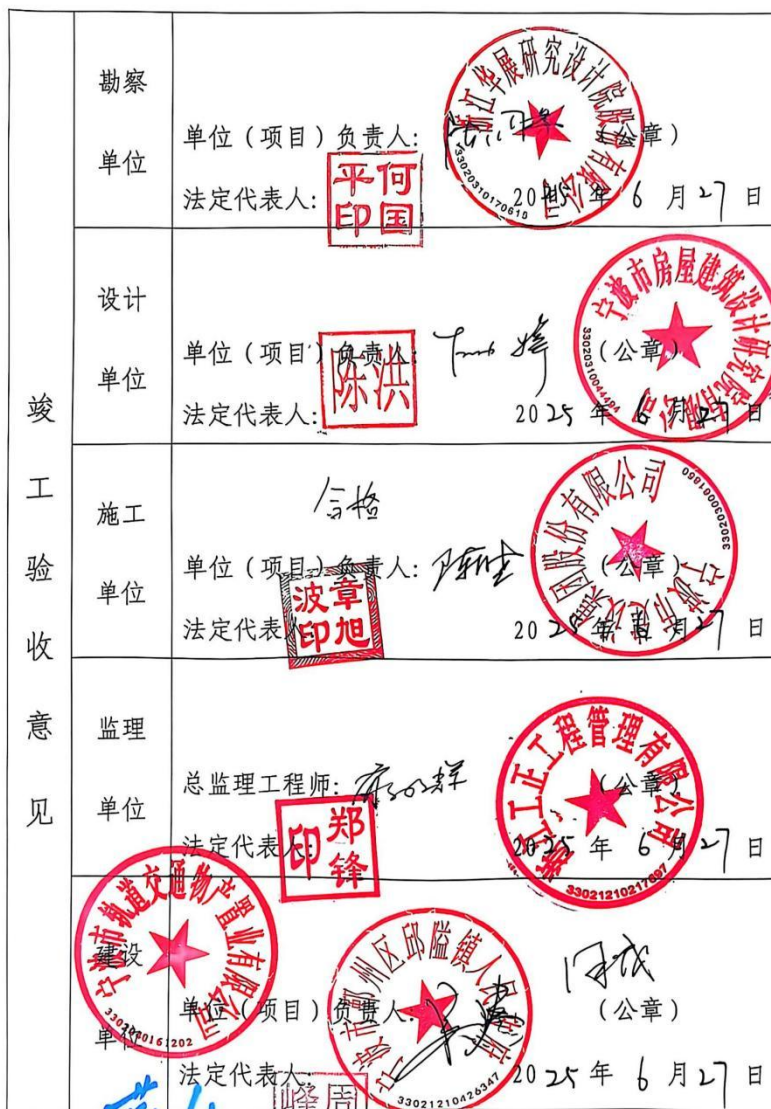 竣工验收意见
勘察单位
单位（项目）负责人：（公章）
法定代表人：2025年6月27日
何国平印
浙江华展研究设计院股份有限公司
33020310170618
设计单位
单位（项目）负责人：（公章）
法定代表人：2025年6月27日
陈洪
宁波市房屋建筑设计研究院有限公司
33020310044494
施工单位
合格
单位（项目）负责人：（公章）
法定代表人：2025年6月27日
章旭波印
宁波市建设集团股份有限公司
监理单位
总监理工程师：（公章）
法定代表人：2025年6月27日
郑锋印
浙江工正工程管理有限公司
33021210217097
建设单位
单位（项目）负责人：（公章）
法定代表人：2025年6月27日
宁波市轨道交通物产置业有限公司
3302020161202
宁波市鄞州区邱隘镇人民政府
33021210426347
周峰